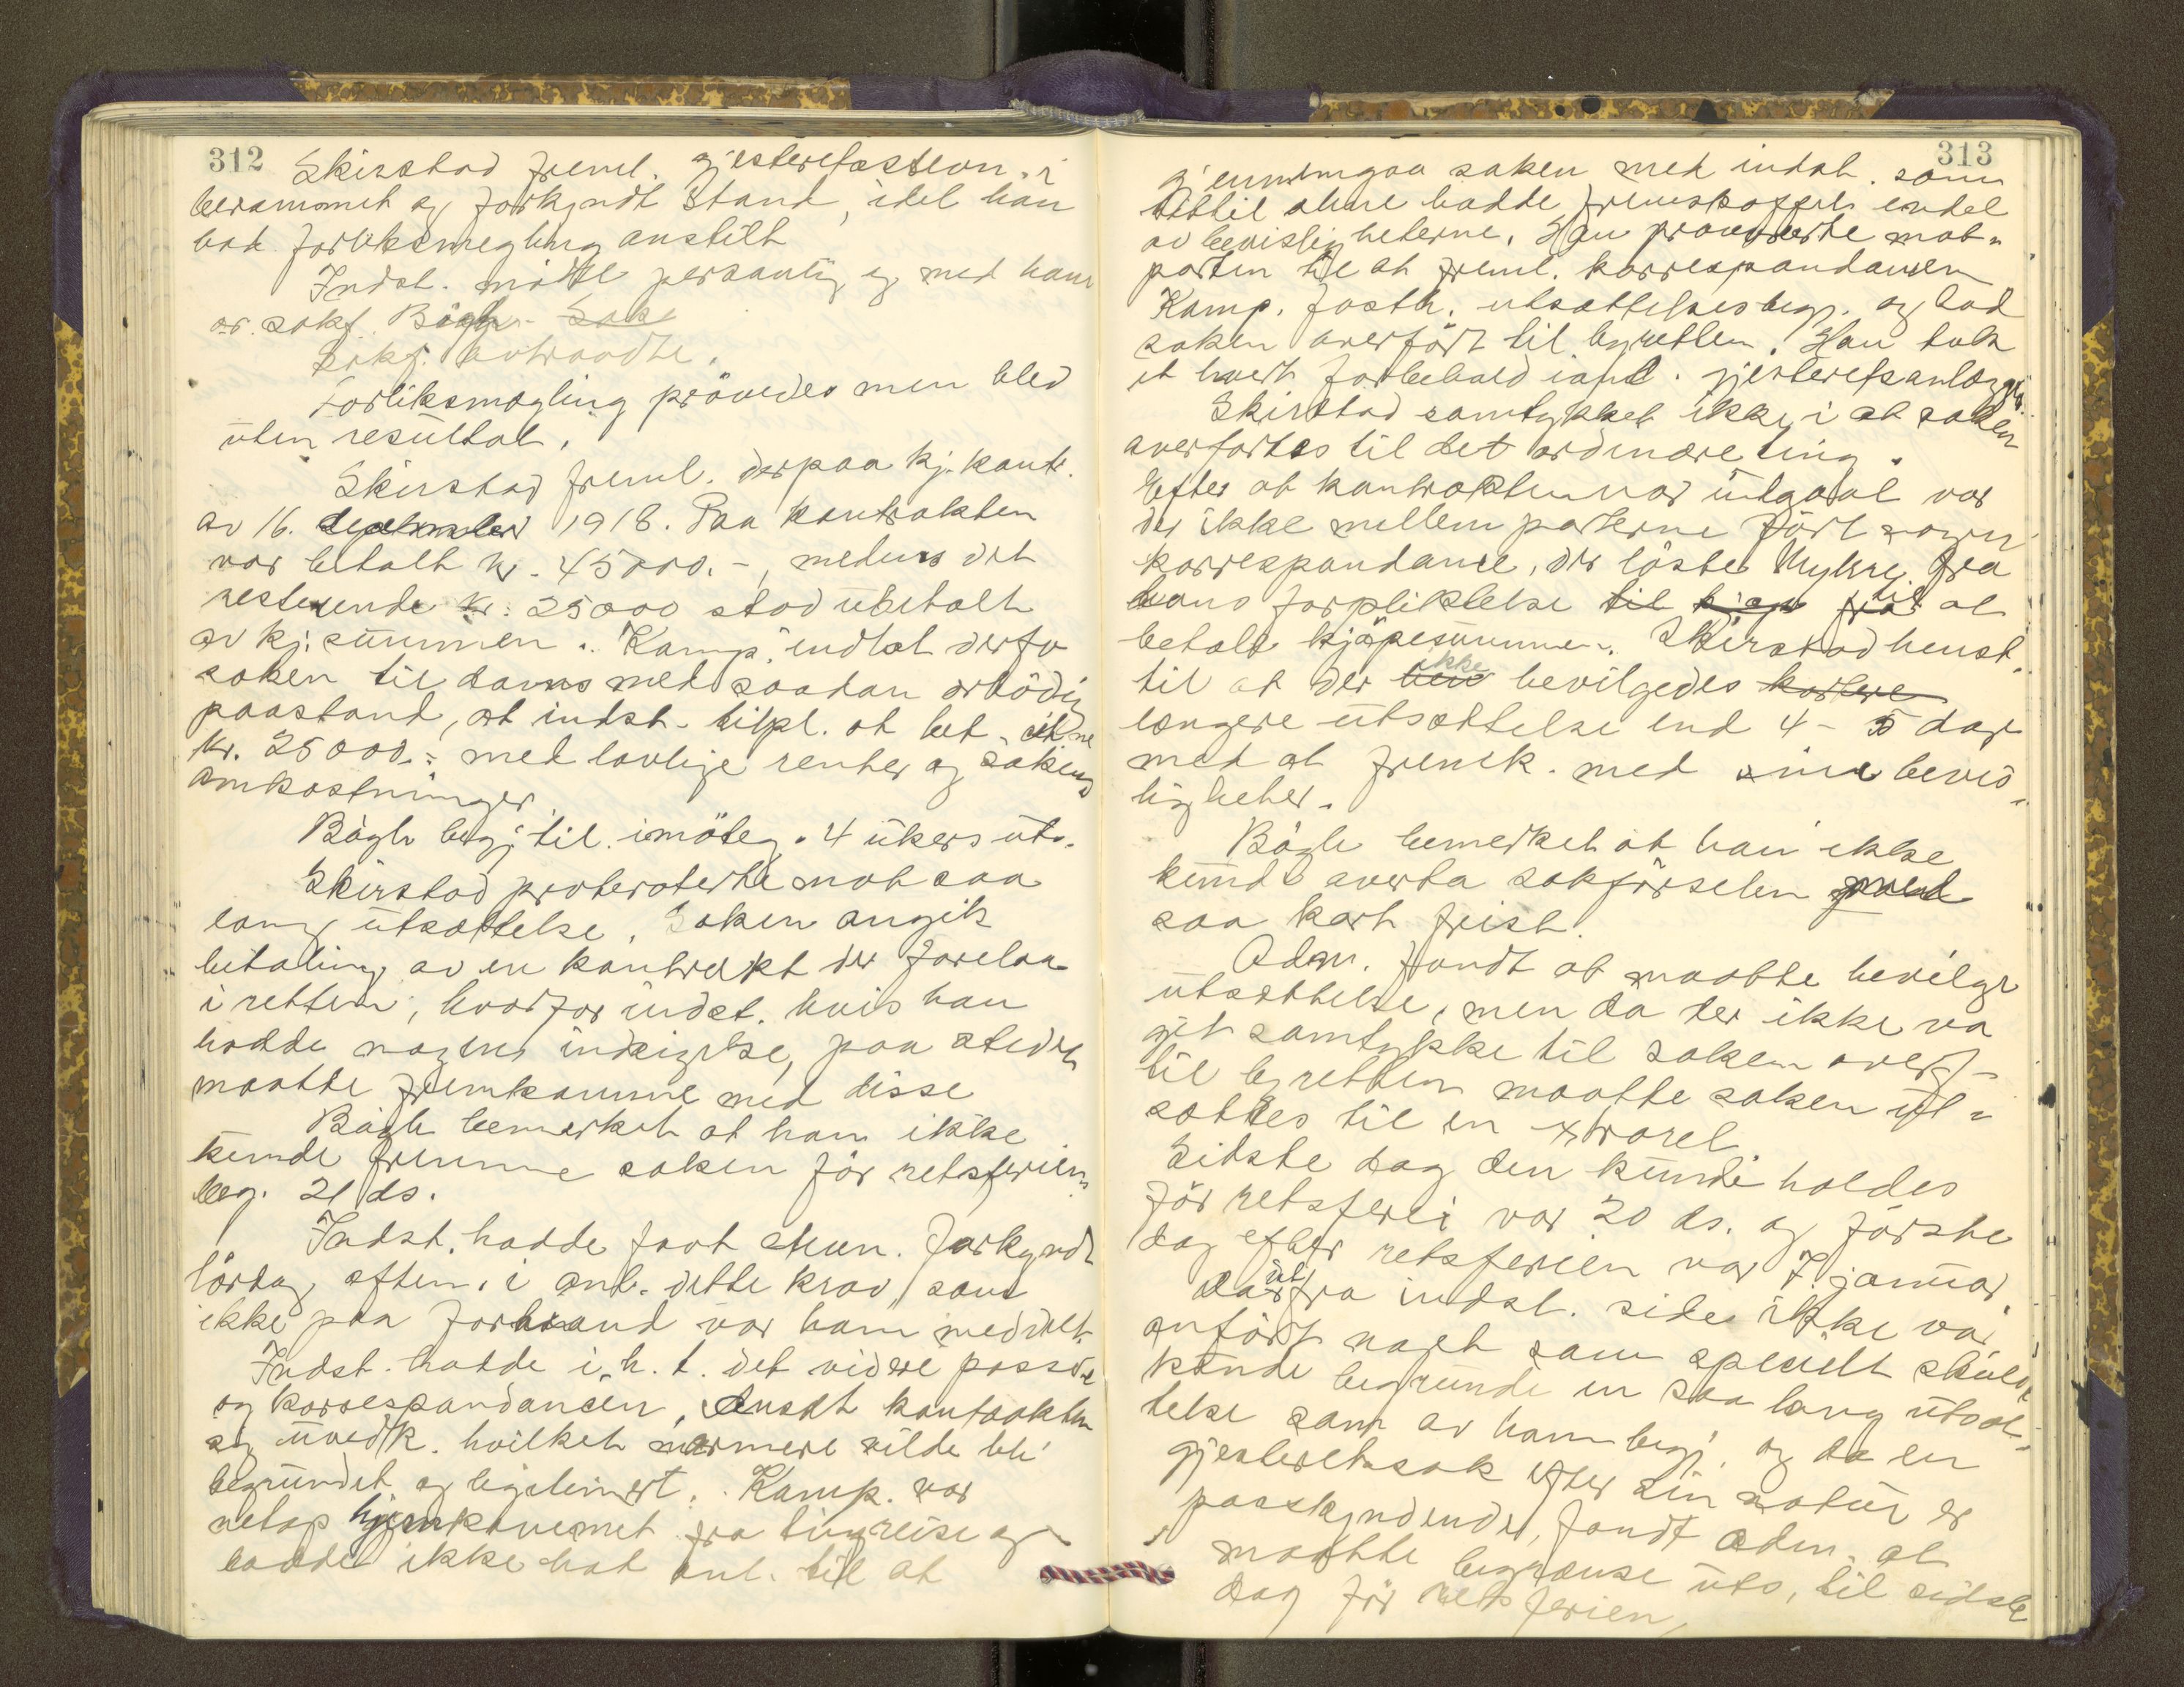 312
Skirstad freml. gjesteretsstevn. i
berammet og forkyndt stand, idet han
bad forliksmegling anstilt
Indst. mötte personlig og med ham
or. sakf. Bögh. Sake
Sakf. avtraadte.
Forliksmægling prövedes men bled
uten resultat.
Skirstad freml. derpaa kj. kontr.
av 16. september 1918. Paa kontrakten
var betalt kr. 45000.-, medens det
resterende kr. 25000 stod ubetalt
av kj. summen. Kamp. indlot derfor
saken til doms med saadan
paastand, at indst. tilpl. at bet. citne
kr. 25000.- med lovlige renter og sakens
omkostninger
Bögh begj. til imöteg. 4 ukers uts.
Skirstad protesterte mot saa
lang utsættelse. Saken angik
betaling av en kontrakt der forelaa
i retten, hvorfor indst. hvis han
hadde nogen indsigelse, paa stedet
maatte fremkomme med disse
Bögh bemerket at han ikke
kunde fremme saken för retsferiens
beg. 21 ds.
Indst. hadde faat stevn. forkyndt
lördag aften. i anl. dette krav som
ikke paa forhaand var ham meddelt.
Indst. hadde i. h. t. det videre passerte
og korrespondancen, ansat kontrakten
og uvedk. hvilket nærmere vilde bli
begrundet og legitimert. Komp. var
netop hjemkommet fra tingreise og
hadde ikke hat anl. til at
313
gjennemgaa saken med indst. som
hittil alene hadde fremskaffet endel
av bevisligheterne. Han provoserte mot-
parten til at freml. korrespondancen
Komp. fasth. utsættelsesbegj. og bad
saken overfört til byretten. Han tok
et hvert forbehold iand. gjesteretsanlægget.
Skirstad samtykket ikke i at saken
overförtes til det ordinære ting.
Efter at kontrakten var indgaat var
der ikke mellem parterne fört nogen
korrespondance, der löste Myhre fra
hans forpliktelse til kjöp fra til at
betale kjöpesummen. Skirstad henst.
til at der ikke bevilgedes kortere
længere utsættelse end 4 - 5 dage
med at fremk. med sine bevis-
ligheter.
Bögh bemerket at han ikke
kunde overta sakförselen med
saa kort frist.
Adm. fandt at maatte bevilge
utsættelse, men da der ikke va
git samtykke til saken overf-
til byretten maatte saken ut-
sættes til en
Sidste dag den kunde holdes
för retsferie var 20 ds. og förste
dag efter retsferien var 7. januar.
da fra indst. side ikke var
anfört noget som specielt skulde
kunde begrunde en saa lang utsæt-
telse som av ham begj. og da en
gjesteretssak efter sin natur er
paaskyndende, fandt adm. at
maatte begrænse uts. til sidste
dag för retsferien,